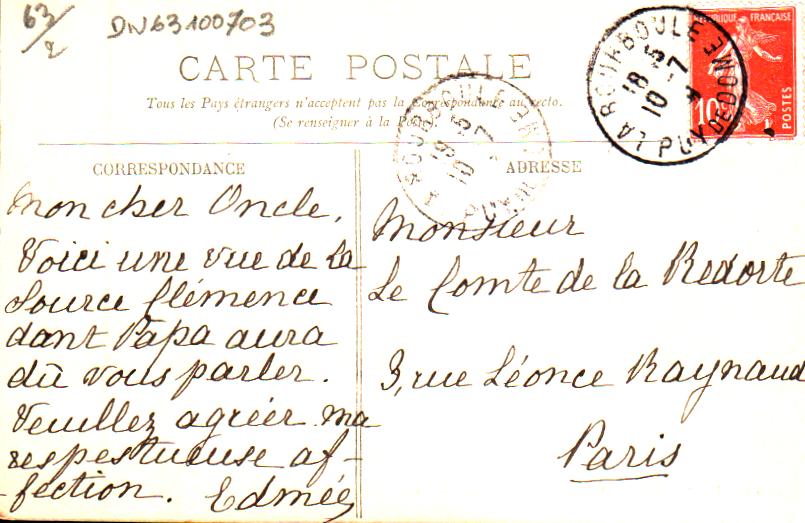 63/2
DN63100703
CARTE POSTALE
Tous les Pays étrangers n'acceptent pas la Correspondance au recto.
(Se renseigner à la Poste)
RÉPUBLIQUE FRANÇAISE
10
POSTES
LA BOURBOULE PUY-DE-DOME
18 15
10 -7
LA BOURBOULE
18 15
10 7
CORRESPONDANCE
Mon cher Oncle,
Voici une vue de la
Source Clémence
dont Papa aura
dû vous parler.
Veuillez agréer ma
respestueuse af-
-fection. Edmée
ADRESSE
Monsieur
Le Comte de la Redorte
3, rue Léonce Raynaud
Paris